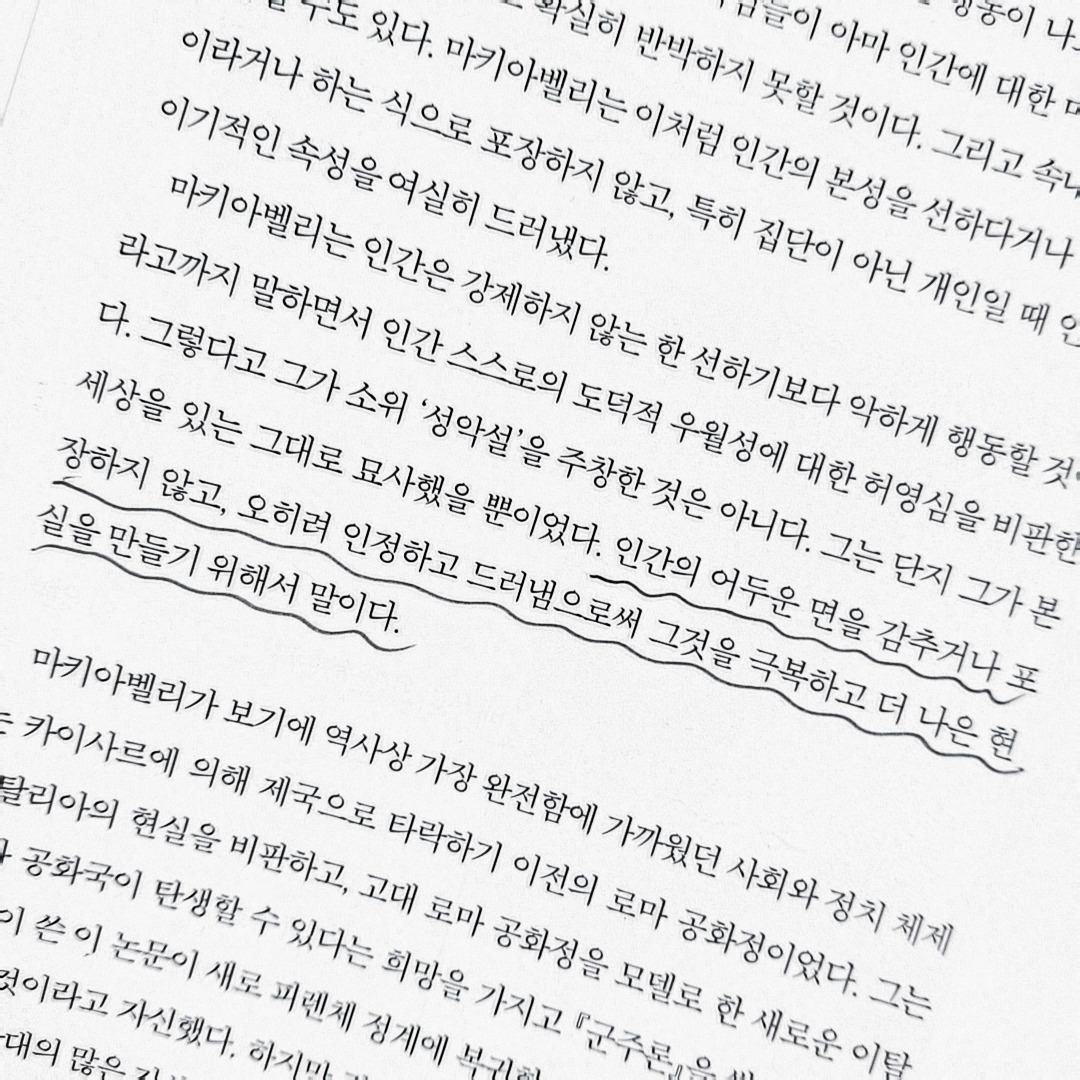 행동이
아마 인간에 대한
수도 있다. 마키아벨리는 이처럼 인간의 본성을 선하다거나
확실히 반박하지 못할 것이다. 그리고
이라거나 하는 식으로 포장하지 않고, 특히 집단이 아닌 개인일 때
이기적인 속성을 여실히 드러냈다.
마키아벨리는 인간은 강제하지 않는 한 선하기보다 악하게 행동할
라고까지 말하면서 인간 스스로의 도덕적 우월성에 대한 허영심을 비판한
다. 그렇다고 그가 소위 ‘성악설’을 주창한 것은 아니다. 그는 단지 그가 본
세상을 있는 그대로 묘사했을 뿐이었다. 인간의 어두운 면을 감추거나 포
장하지 않고, 오히려 인정하고 드러냄으로써 그것을 극복하고 더 나은 현
실을 만들기 위해서 말이다.
마키아벨리가 보기에 역사상 가장 완전함에 가까웠던 사회와 정치 체제
는 카이사르에 의해 제국으로 타락하기 이전의 로마 공화정이었다. 그는
탈리아의 현실을 비판하고, 고대 로마 공화정을 모델로 한 새로운 이탈
공화국이 탄생할 수 있다는 희망을 가지고 『군주론』을
이 쓴 이 논문이 새로 피렌체 정계에
것이라고 자신했다. 하지만
많은